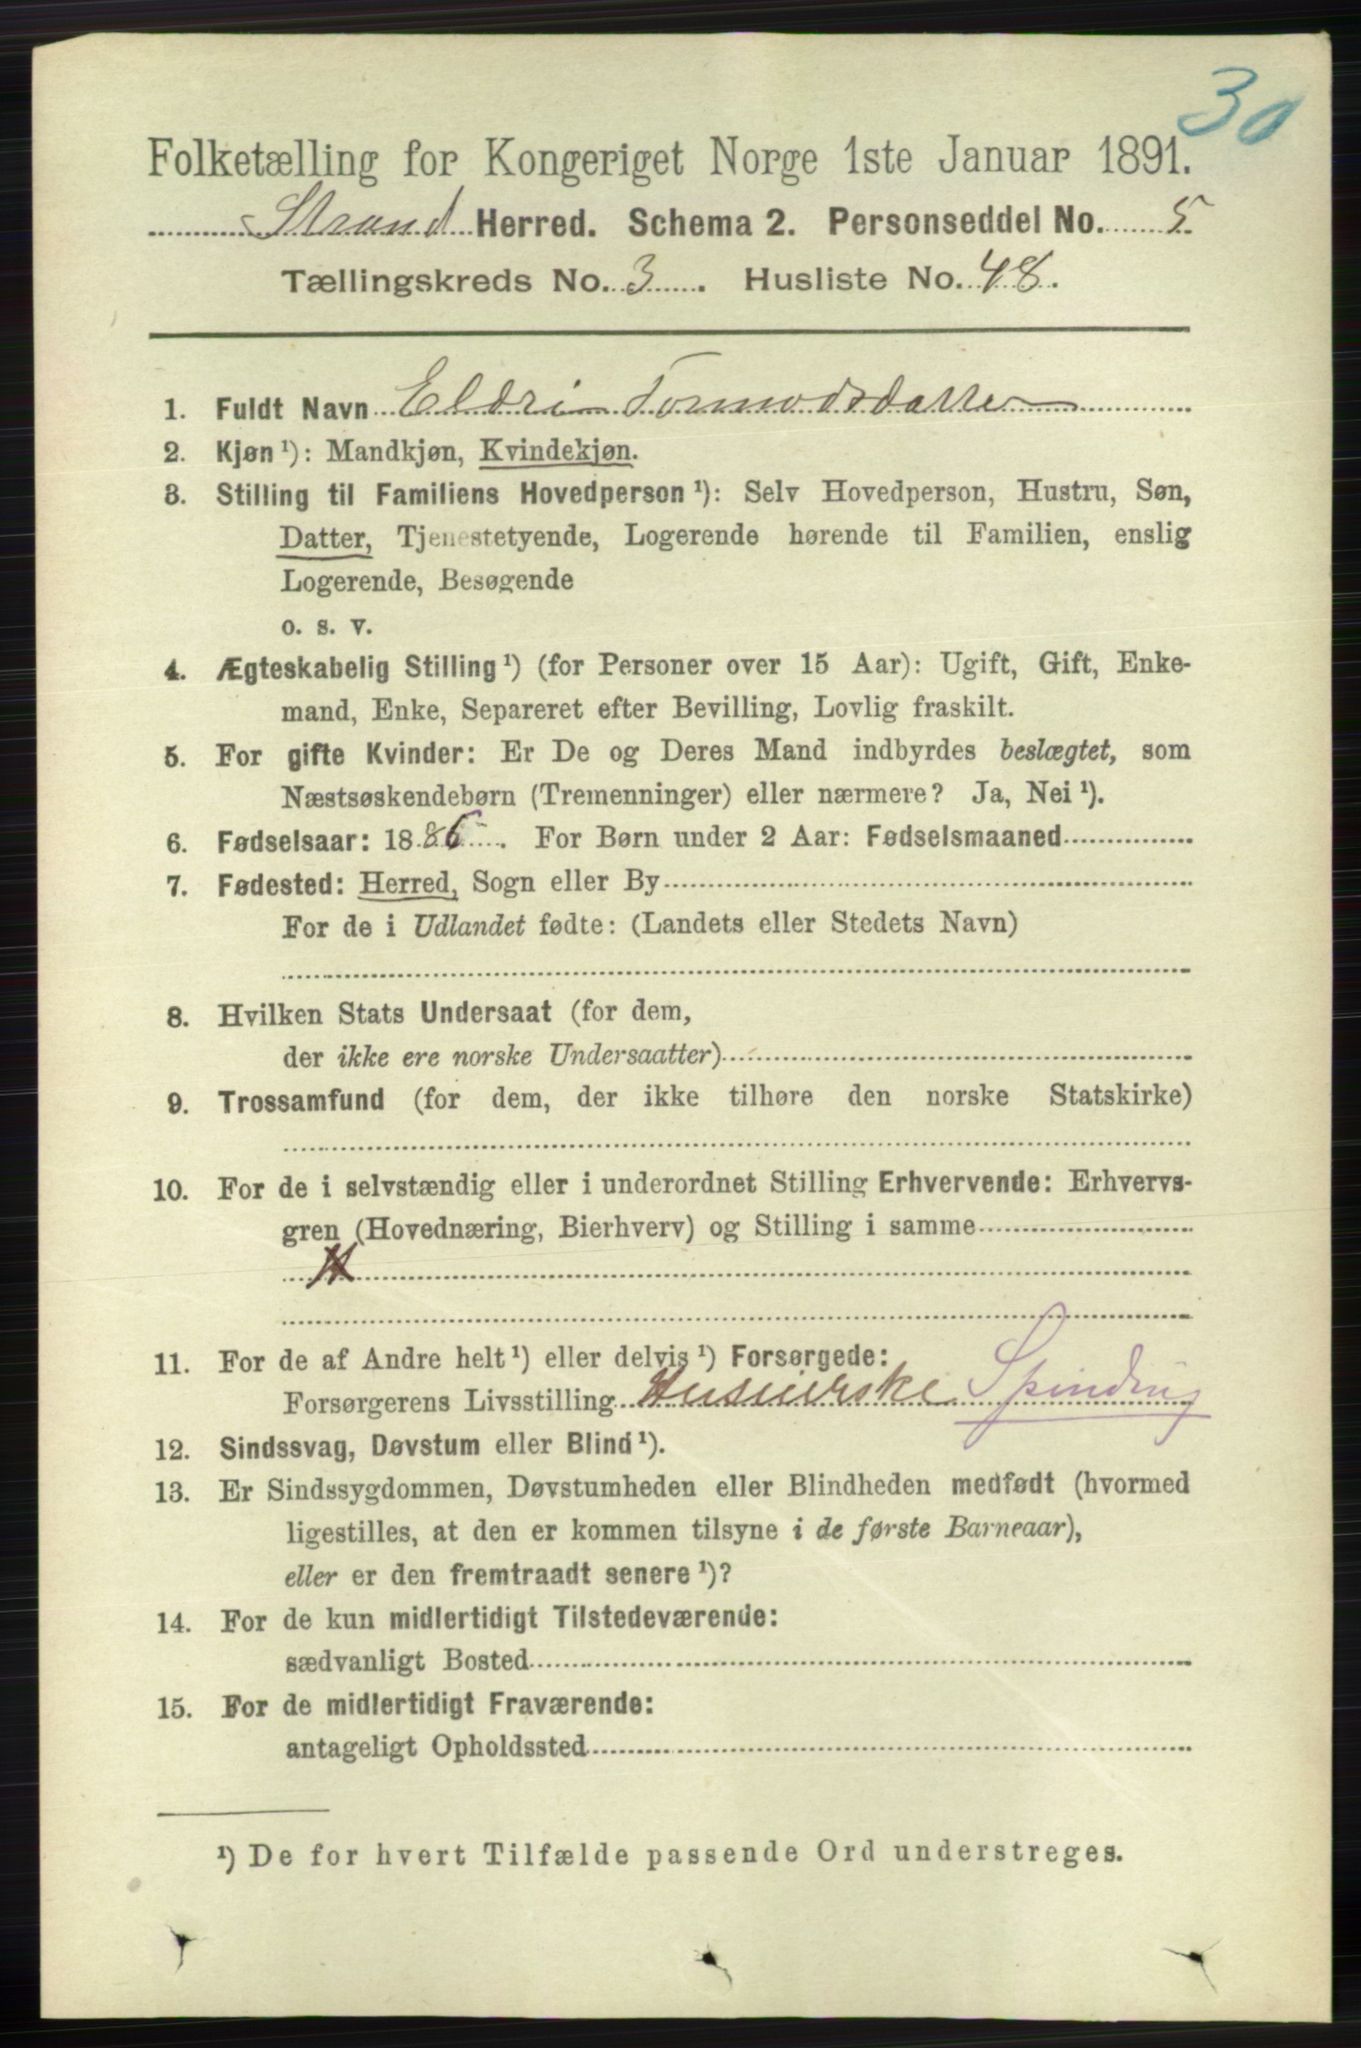 30
Folketælling for Kongeriget Norge 1ste Januar 1891.
Strand Herred. Schema 2. Personseddel No. 5
Tællingskreds No. 3. Husliste No. 48.
1. Fuldt Navn Eldri Tormodsdatter
2. Kjøn ¹): Mandkjøn, Kvindekjøn.
3. Stilling til Familiens Hovedperson ¹): Selv Hovedperson, Hustru, Søn,
Datter, Tjenestetyende, Logerende hørende til Familien, enslig
Logerende, Besøgende
o. s. v.
4. Ægteskabelig Stilling ¹) (for Personer over 15 Aar): Ugift, Gift, Enke-
mand, Enke, Separeret efter Bevilling, Lovlig fraskilt.
5. For gifte Kvinder: Er De og Deres Mand indbyrdes beslægtet, som
Næstsøskendebørn (Tremenninger) eller nærmere? Ja, Nei ¹).
6. Fødselsaar: 1886. For Børn under 2 Aar: Fødselsmaaned
7. Fødested: Herred, Sogn eller By
For de i Udlandet fødte: (Landets eller Stedets Navn)
8. Hvilken Stats Undersaat (for dem,
der ikke ere norske Undersaatter)
9. Trossamfund (for dem, der ikke tilhøre den norske Statskirke)
10. For de i selvstændig eller i underordnet Stilling Erhvervende: Erhvervs-
gren (Hovednæring, Bierhverv) og Stilling i samme
11. For de af Andre helt ¹) eller delvis ¹) Forsørgede:
Forsørgerens Livsstilling Spinding
12. Sindssvag, Døvstum eller Blind ¹).
13. Er Sindssygdommen, Døvstumheden eller Blindheden medfødt (hvormed
ligestilles, at den er kommen tilsyne i de første Barneaar),
eller er den fremtraadt senere ¹)?
14. For de kun midlertidigt Tilstedeværende:
sædvanligt Bosted
15. For de midlertidigt Fraværende:
antageligt Opholdssted
¹) De for hvert Tilfælde passende Ord understreges.